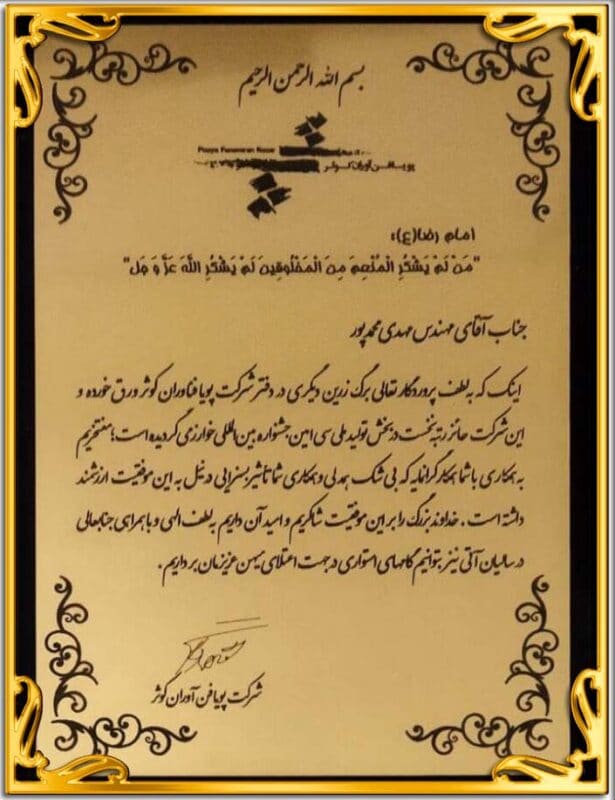 بسم الله الرحمن الرحیم
Pooya Fanavaran Kosar
پویا فن آوران کوثر
امام رضا(ع):
"مَنْ لَمْ یَشْکُرِ الْمُنْعِمَ مِنَ الْمَخْلُوقِینَ لَمْ یَشْکُرِ اللَّهَ عَزَّ وَ جَل"
جناب آقای مهندس مهدی محمدپور
اینک که به لطف پروردگار تعالی برگ زرین دیگری در دفتر شرکت پویا فناوران کوثر ورق خورده و
این شرکت حائز رتبه نخست در بخش تولید ملی سی امین جشنواره بین المللی خوارزمی گردیده است؛ مفتخریم
به همکاری با شما همکار گرانمایه که بی شک همدلی و همکاری شما تاثیر بسزایی در نیل به این موفقیت ارزشمند
داشته است. خداوند بزرگ را بر این موفقیت شاکریم و امید آن داریم به لطف الهی و با همراهی جنابعالی
در سالیان آتی نیز بتوانیم گامهای استواری در جهت اعتلای میهن عزیزمان برداریم.
شرکت پویا فن آوران کوثر